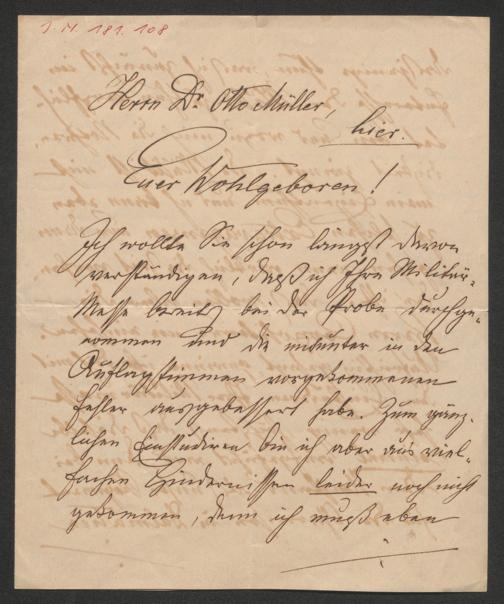 I. N. 181.108
Herrn Dr. Otto Müller,
hier.
Euer Wohlgeboren!
Ich wollte Sie schon längst davon
verständigen, daß ich Ihre Militär-
Messe bereits bei der Probe durchge-
nommen und die mitunter in den
Auflagstimmen vorgekommenen
Fehler ausgebessert habe. Zum gänz-
lichen Einstudiren bin ich aber aus viel-
fachen Hindernissen leider noch nicht
gekommen, denn ich muß eben